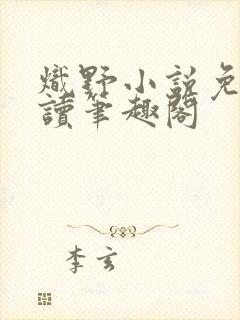 熾野小説免
讀筆趣閣
李玄